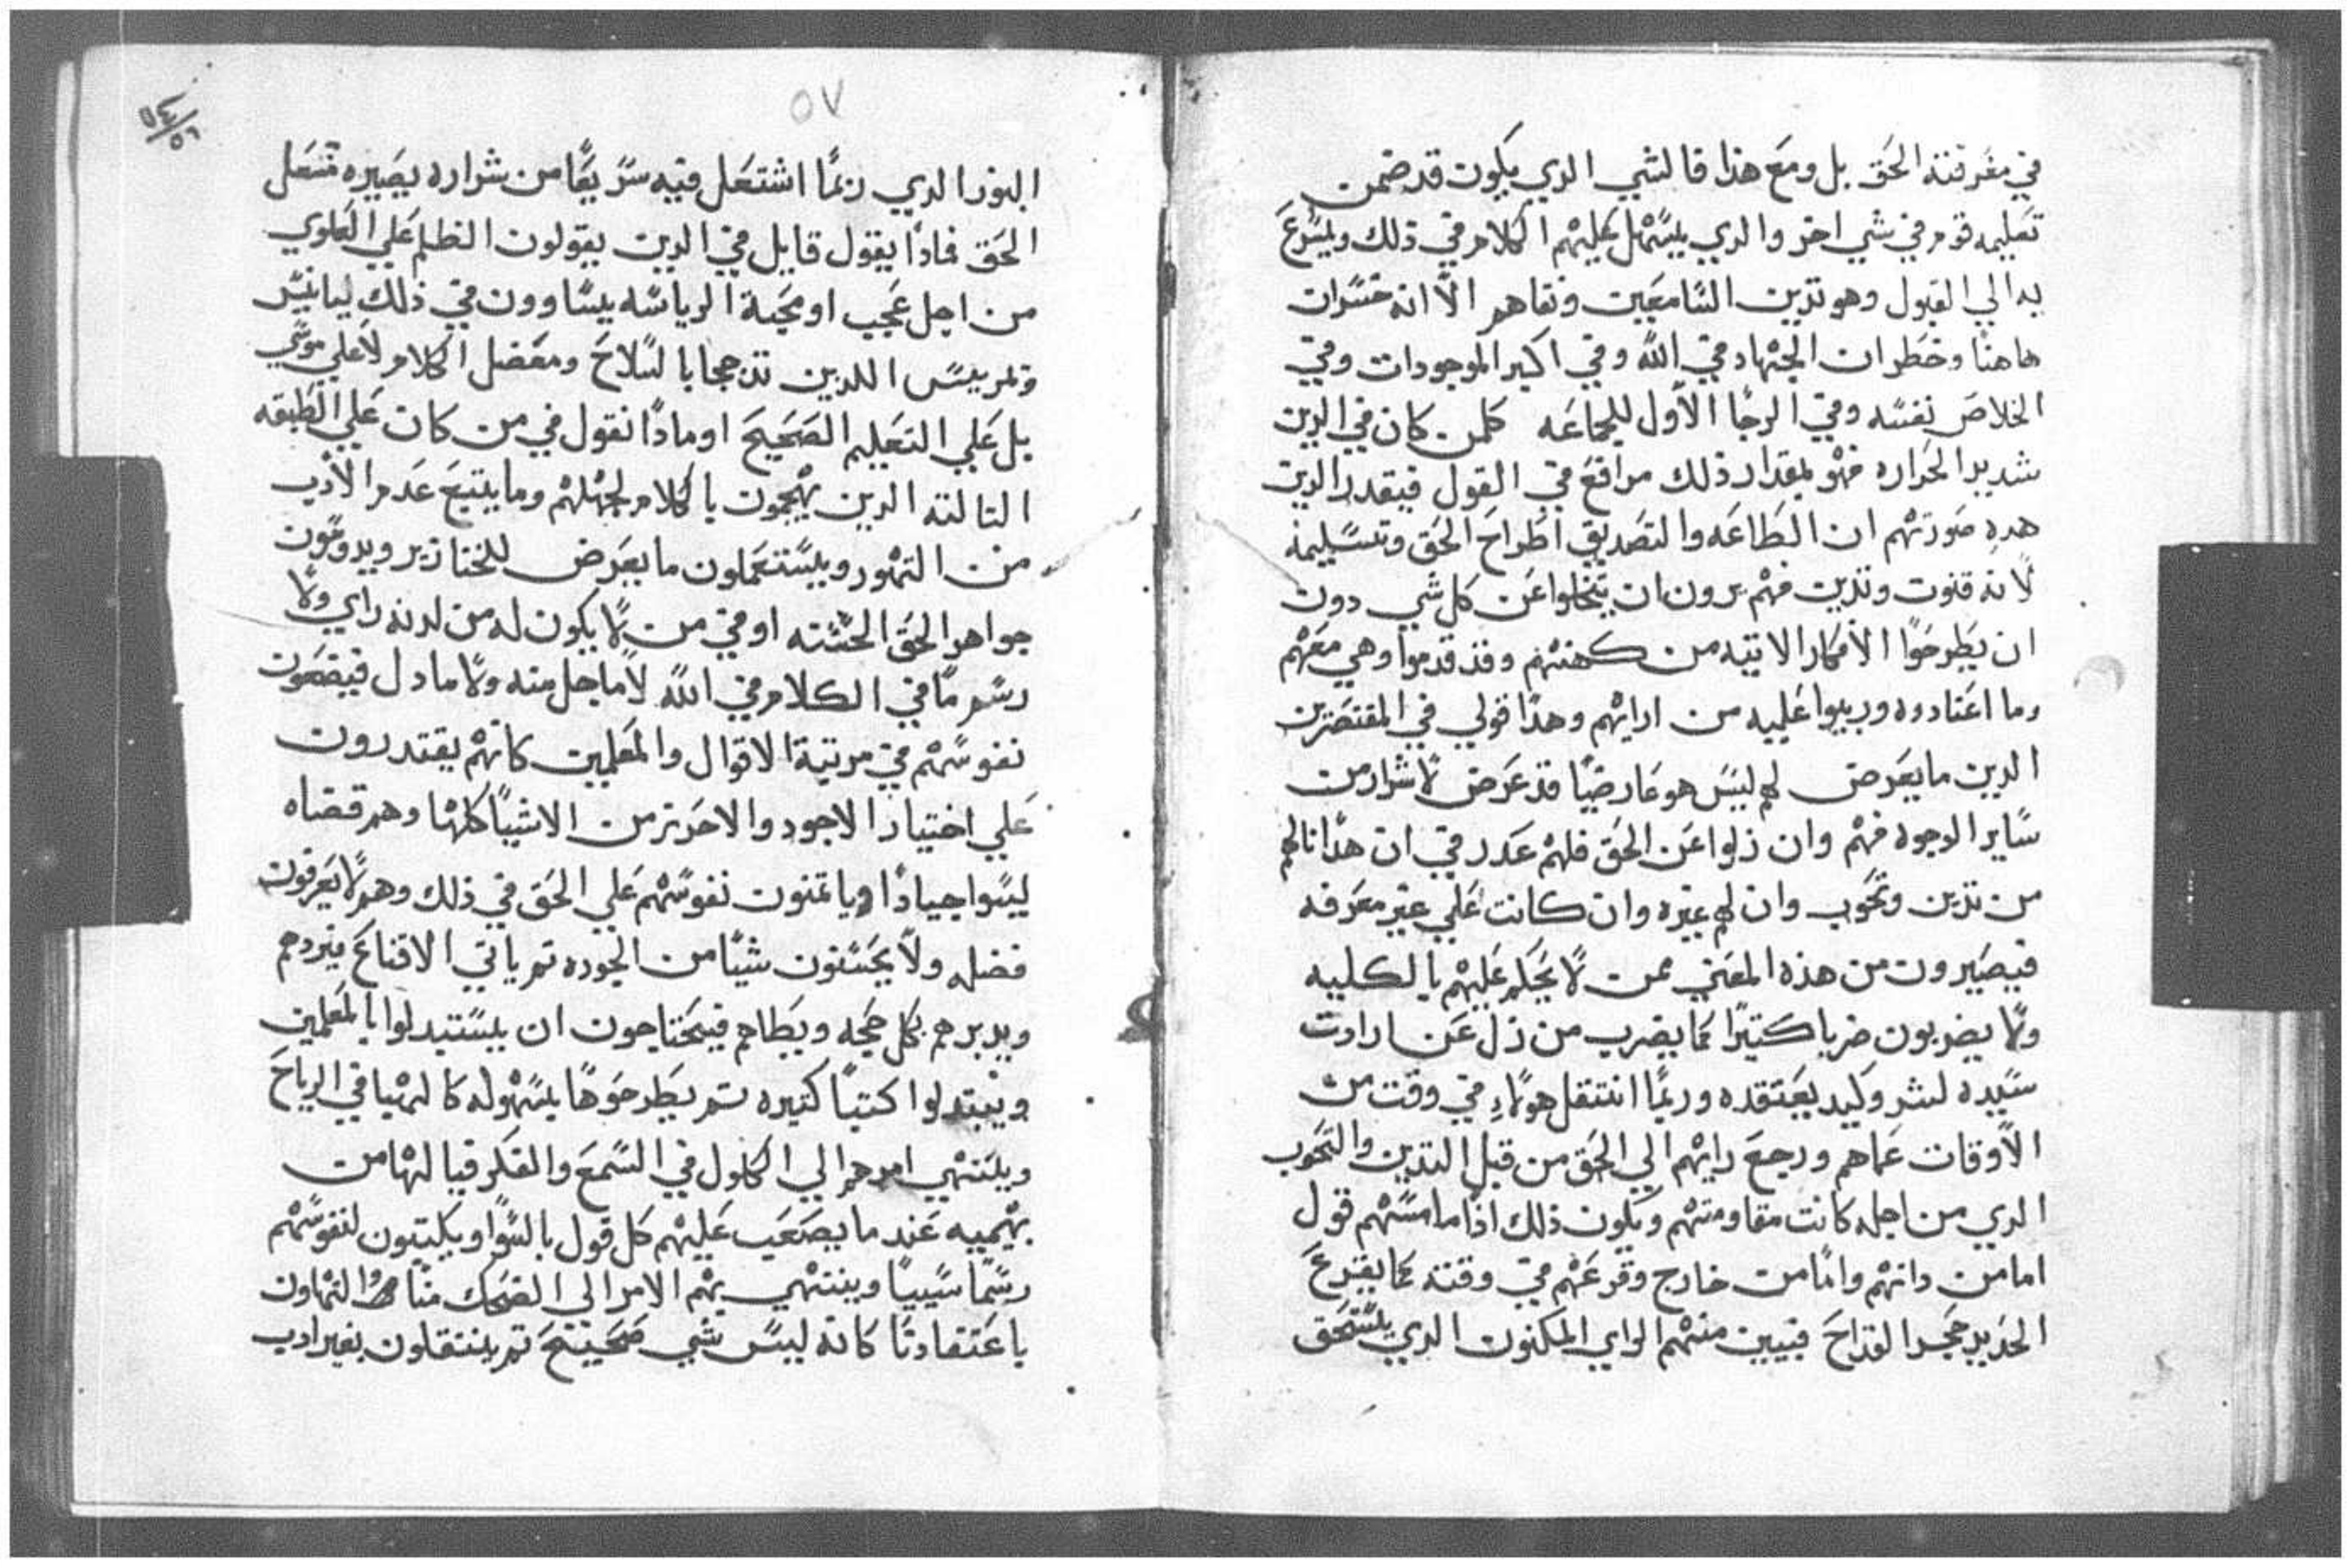 في معرفته الحق بل ومع هذا فالشي الدي يكون قد ضمن
تعليمه قوم في شي اخر والدي يسهل عليهم الكلام في ذلك ويسرع
به الي القبول وهو تدين السامعين ونقاهم الا انه خسران
هاهنا وخطر ان الجتهاد في الله وفي اكبر الموجودات وفي
الخلاص نفسه وفي الرجا الاول للجماعه كلمن كان في الدين
شديد الحراره فهو بمقدار ذلك مرافع في القول فيقدر الدين
هده صورتهم ان الطاعه والتصديق اطراح الحق وتسليمه
لانه قنوت وتدين فهم يرون ان يتخلوا عن كل شي دون
ان يطرحوا الافكار الاتيه من كهنتهم وقد قدموا وهي معهم
وما اعتادوه وربيوا عليه من ارايهم وهدا قولي في المقتصرين
الدين ما يعرض لهم ليس هو عارضيا قد عرض لاشرار من
ساير الوجوه فهم وان زلوا عن الحق فلهم عدر في ان هدا نالهم
من تدين وتحوب وان لهم غيره وان كانت علي غير معرفه
فيصيرون من هذه المعني ممن لا يحكم عليهم بالكليه
ولا يضربون ضربا كتيرا كما يضرب من زل عن ارادت
سيده لشر وكيد يعتقده وربما انتقل هولاء في وقت من
الاوقات عماهم ورجع رايهم الي الحق من قبل التدين والتحوب
الدي من اجله كانت مقاومتهم ويكون ذلك اذا ما مسهم قول
اما من داتهم واما من خارج وقرعهم في وقته كما يقرع
الحديد حجر القداح فيبين منهم الراي المكنون الدي يستحق
٥٧
٥٤
٥٦
النور الدي ربما اشتعل فيه سريعا من شراره يصيره مشعل
الحق فمادا يقول قايل في الدين يقولون الظلم علي العلوي
من اجل عجب او محبة الرياسه يساوون في ذلك ليانيس
ويمريس اللدين تدججا بالسلاح ومعضل الكلام لا علي موسي
بل علي التعليم الصحيح او مادا نقول في من كان علي الطبقه
التالته الدين يهجمون بالكلام لجهلهم وما يتبع عدم الادب
من التهور ويستعملون ما يعرض للخنازير ويدوسون
جواهر الحق الحسنه او في من لا يكون له من لدنه راي ولا
رسم ما في الكلام في الله لا ما جل منه ولا ما دل فيضعون
نفوسهم في مرتبة الاقوال والمعلمين كانهم يقتدرون
علي اختيار الاجود والاحرز من الاشيا كلها وهم قضاه
ليسوا جيادا وياتمنون نفوسهم علي الحق في ذلك وهم لا يعرفون
فضله ولا يحسنون شيا من الجوده تم ياتي الاقناع فيردهم
ويديرهم بكل حجه ويطاهم فيحتاجون ان يستبدلوا بالمعلمين
ويبتدلوا كتبا كتيره تم يطرحوها بسهوله كالهبا في الرياح
وينتهي امرهم الي الكلول في السمع والفكر فيالها من
بهيميه عند ما يصعب عليهم كل قول بالسوا ويكتبون لنفوسهم
رسما سيبيا وينتهي بهم الامر الي الضحك منا والتهاون
باعتقادنا كانه ليس شي صحيح تم ينتقلون بغير ادب